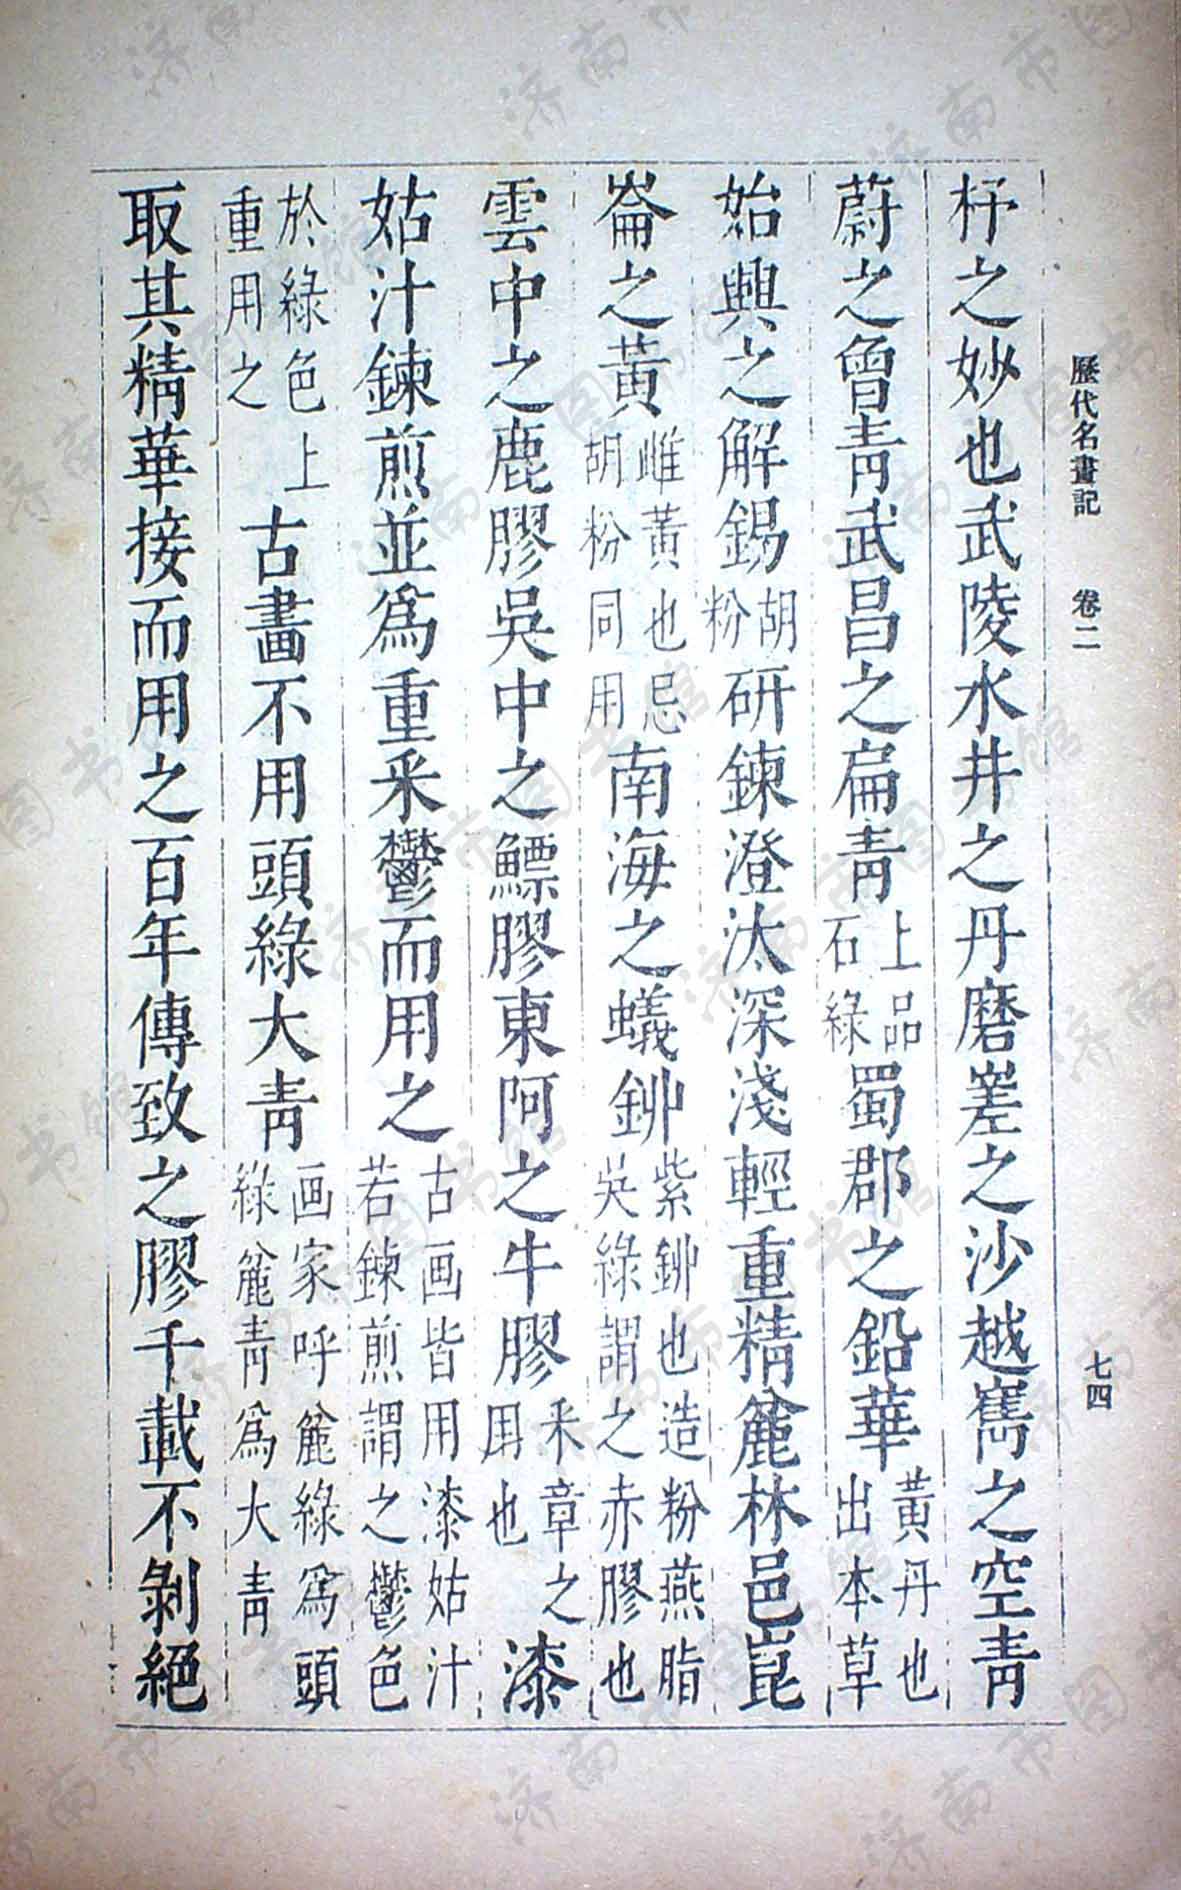 歷代名畫記 卷二 七四
杼之妙也武陵水井之丹磨嵳之沙越嶲之空青
蔚之曾青武昌之扁青上品石綠蜀郡之鉛華黃丹也出本草
始興之解錫胡粉研鍊澄汰深淺輕重精麄林邑崑
崙之黃雌黃也忌胡粉同用南海之蟻鉚紫鉚也造粉燕脂吳綠謂之赤膠也
雲中之鹿膠吳中之鰾膠東阿之牛膠采章之用也漆
姑汁鍊煎並爲重采鬱而用之古画皆用漆姑汁若鍊煎謂之鬱色
於綠色上重用之古畫不用頭綠大青画家呼麄綠爲頭綠麄青爲大青
取其精華接而用之百年傳致之膠千載不剝絕
济南市图书馆